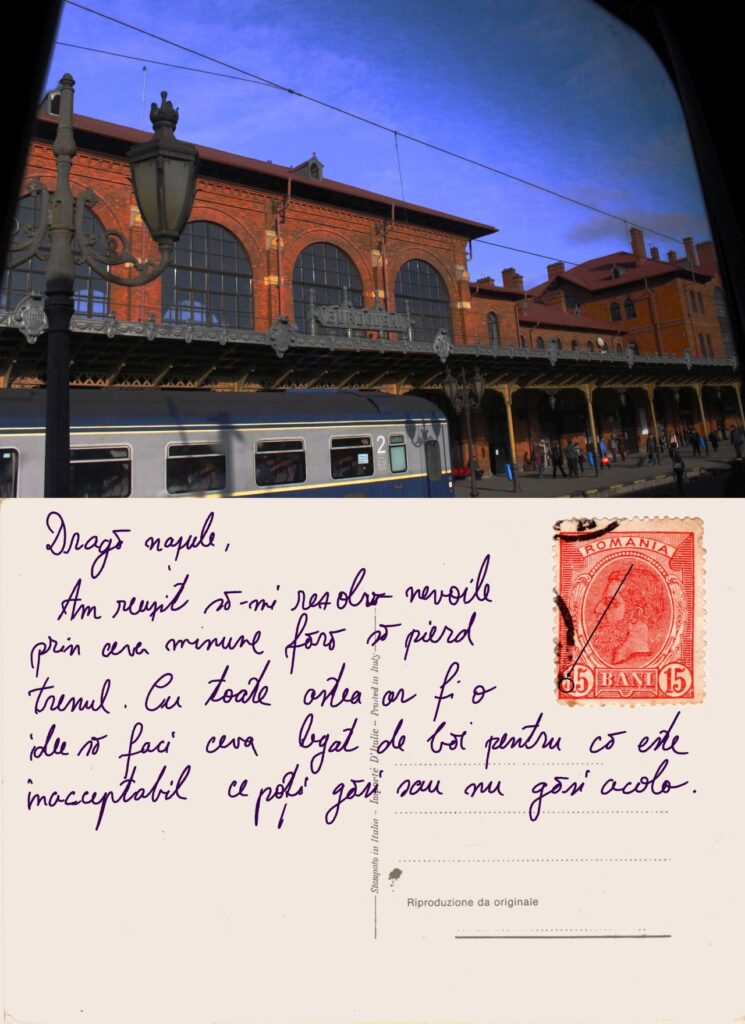 BURDUJENI
2
Dragă nașule,
Am reușit să-mi rezolv nevoile
prin ceva minune fără să pierd
trenul. Cu toate astea ar fi o
idee să faci ceva legat de băi pentru că este
inacceptabil ce poți găsi sau nu găsi acolo.
ROMANIA
15 BANI 15
Stampato in Italia – Importé D'Italie – Printed in Italy
Riproduzione da originale